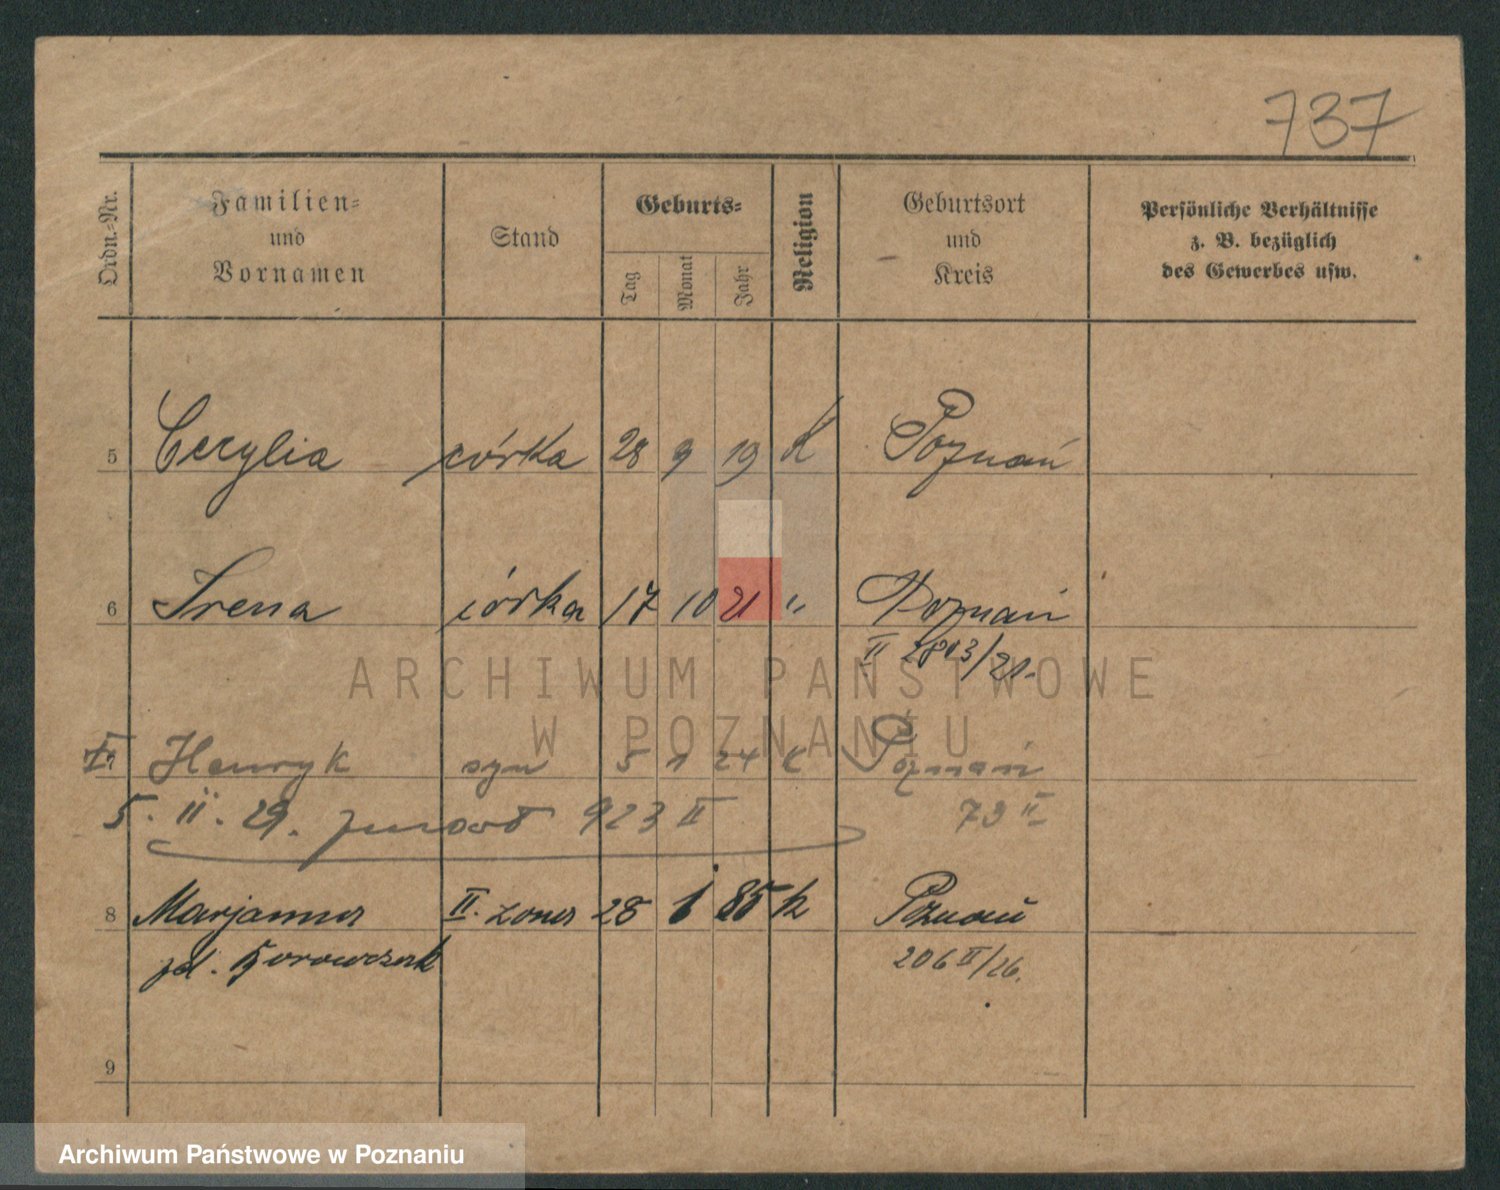 737
Ordn.-Nr.
Familien-
und
Vornamen
Stand
Geburts-
Tag
Monat
Jahr
Religion
Geburtsort
und
Kreis
Persönliche Verhältnisse
z. B. bezüglich
des Gewerbes usw.
5 Cecylia córka 28 9 19 K Poznań
6 Irena córka 17 10 21 " Poznań
II 2813/21.
Henryk syn 5 1 24 K Poznań
5. II. 29. 923 II 73 II
8 Marjanna II. żona 28 1 85 k Poznań
206 II/26.
9
ARCHIWUM PAŃSTWOWE
W POZNANIU
Archiwum Państwowe w Poznaniu